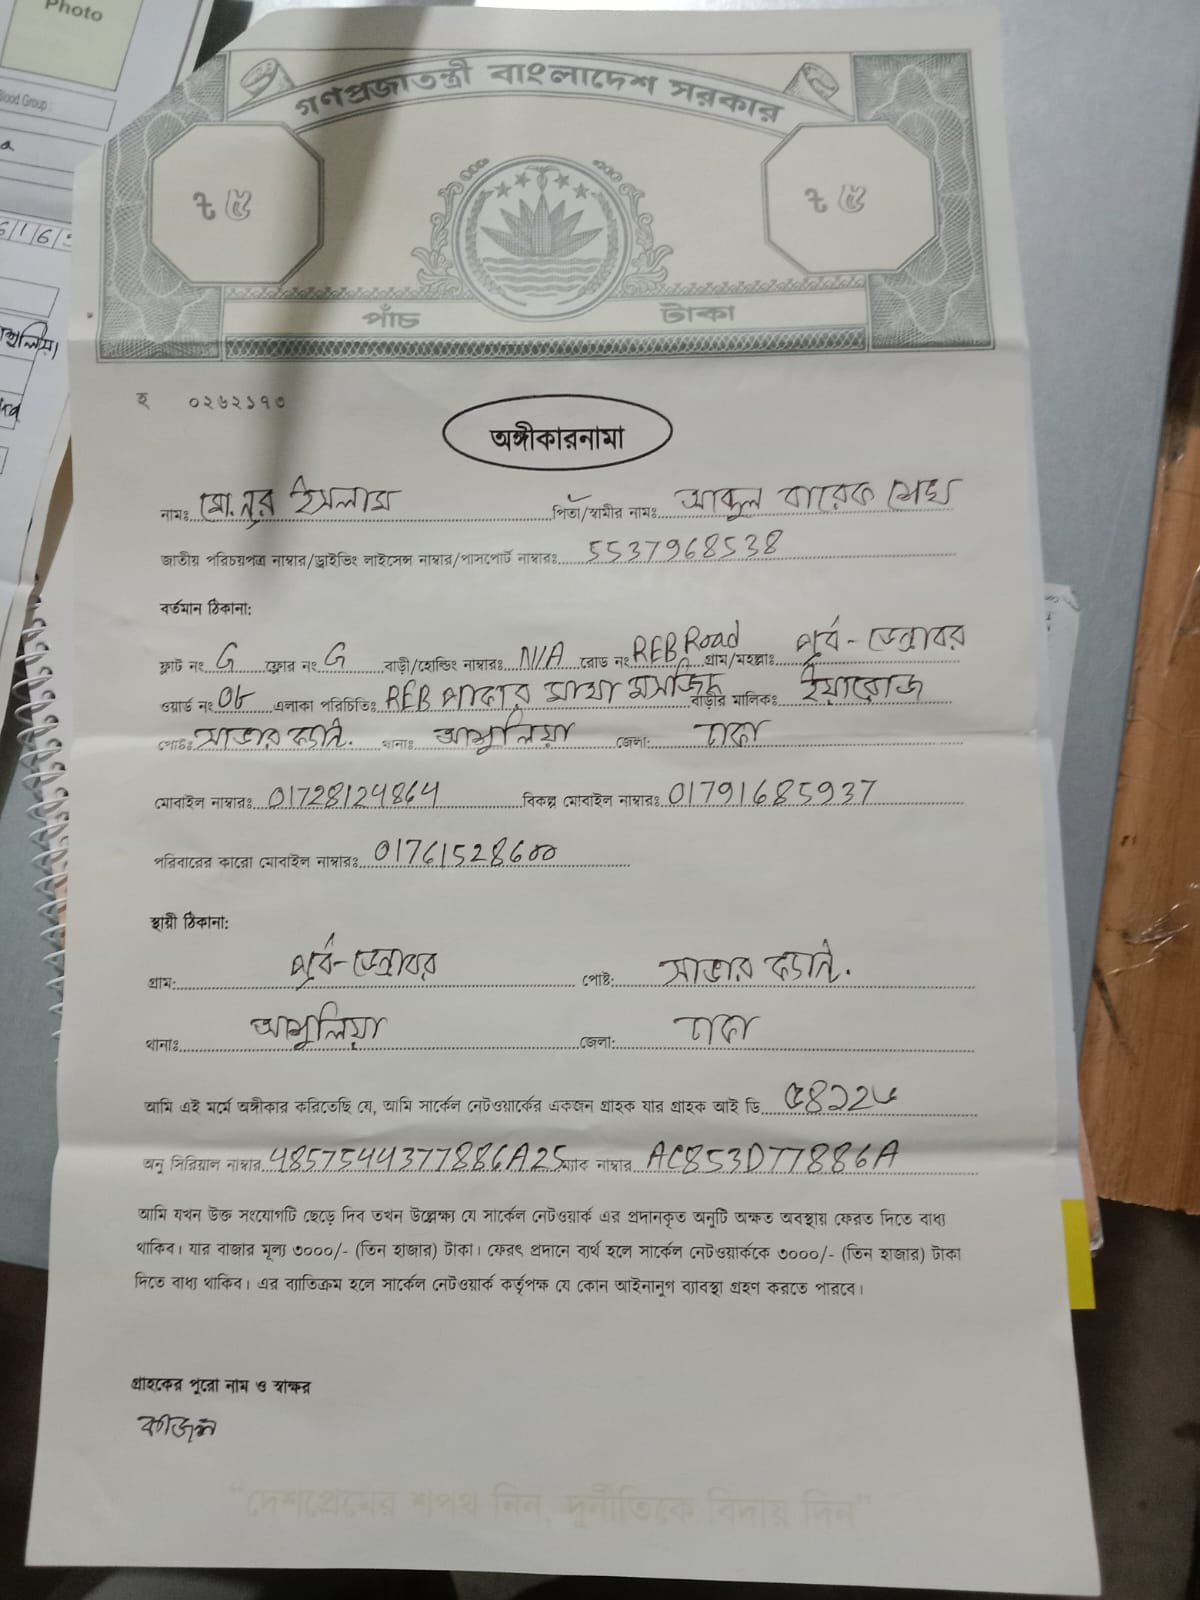 Photo
Blood Group :
গণপ্রজাতন্ত্রী বাংলাদেশ সরকার
৳ ৫ ৳ ৫
পাঁচ টাকা
হ ০২৬২১৭৩
অঙ্গীকারনামা
নামঃ মো. নুর ইসলাম পিতা/স্বামীর নামঃ বারেক শেখ
জাতীয় পরিচয়পত্র নাম্বার/ড্রাইভিং লাইসেন্স নাম্বার/পাসপোর্ট নাম্বারঃ 5537968538
বর্তমান ঠিকানা:
ফ্লাট নং G ফ্লোর নং G বাড়ী/হোল্ডিং নাম্বারঃ N/A রোড নং REB Road গ্রাম/মহল্লাঃ পূর্ব-ডেন্ডাবর
ওয়ার্ড নং এলাকা পরিচিতিঃ REB মাথা মসজিদ বাড়ীর মালিকঃ
পোষ্ট: সাভার ক্যান্ট. থানাঃ আশুলিয়া জেলা: ঢাকা
মোবাইল নাম্বারঃ 01728124864 বিকল্প মোবাইল নাম্বারঃ 01791685937
পরিবারের কারো মোবাইল নাম্বারঃ 01761528600
স্থায়ী ঠিকানা:
গ্রাম: পূর্ব-ডেন্ডাবর পোষ্ট: সাভার ক্যান্ট.
থানাঃ আশুলিয়া জেলা: ঢাকা
আমি এই মর্মে অঙ্গীকার করিতেছি যে, আমি সার্কেল নেটওয়ার্কের একজন গ্রাহক যার গ্রাহক আই ডি
অনু সিরিয়াল নাম্বার 4857544377886A25 ম্যাক নাম্বার AC853D77886A
আমি যখন উক্ত সংযোগটি ছেড়ে দিব তখন উল্লেক্ষ্য যে সার্কেল নেটওয়ার্ক এর প্রদানকৃত অনুটি অক্ষত অবস্থায় ফেরত দিতে বাধ্য
থাকিব। যার বাজার মূল্য ৩০০০/- (তিন হাজার) টাকা। ফেরৎ প্রদানে ব্যর্থ হলে সার্কেল নেটওয়ার্ককে ৩০০০/- (তিন হাজার) টাকা
দিতে বাধ্য থাকিব। এর ব্যাতিক্রম হলে সার্কেল নেটওয়ার্ক কর্তৃপক্ষ যে কোন আইনানুগ ব্যাবস্থা গ্রহণ করতে পারবে।
গ্রাহকের পুরো নাম ও স্বাক্ষর
কাজল
"দেশপ্রেমের শপথ নিন, দুর্নীতিকে বিদায় দিন"